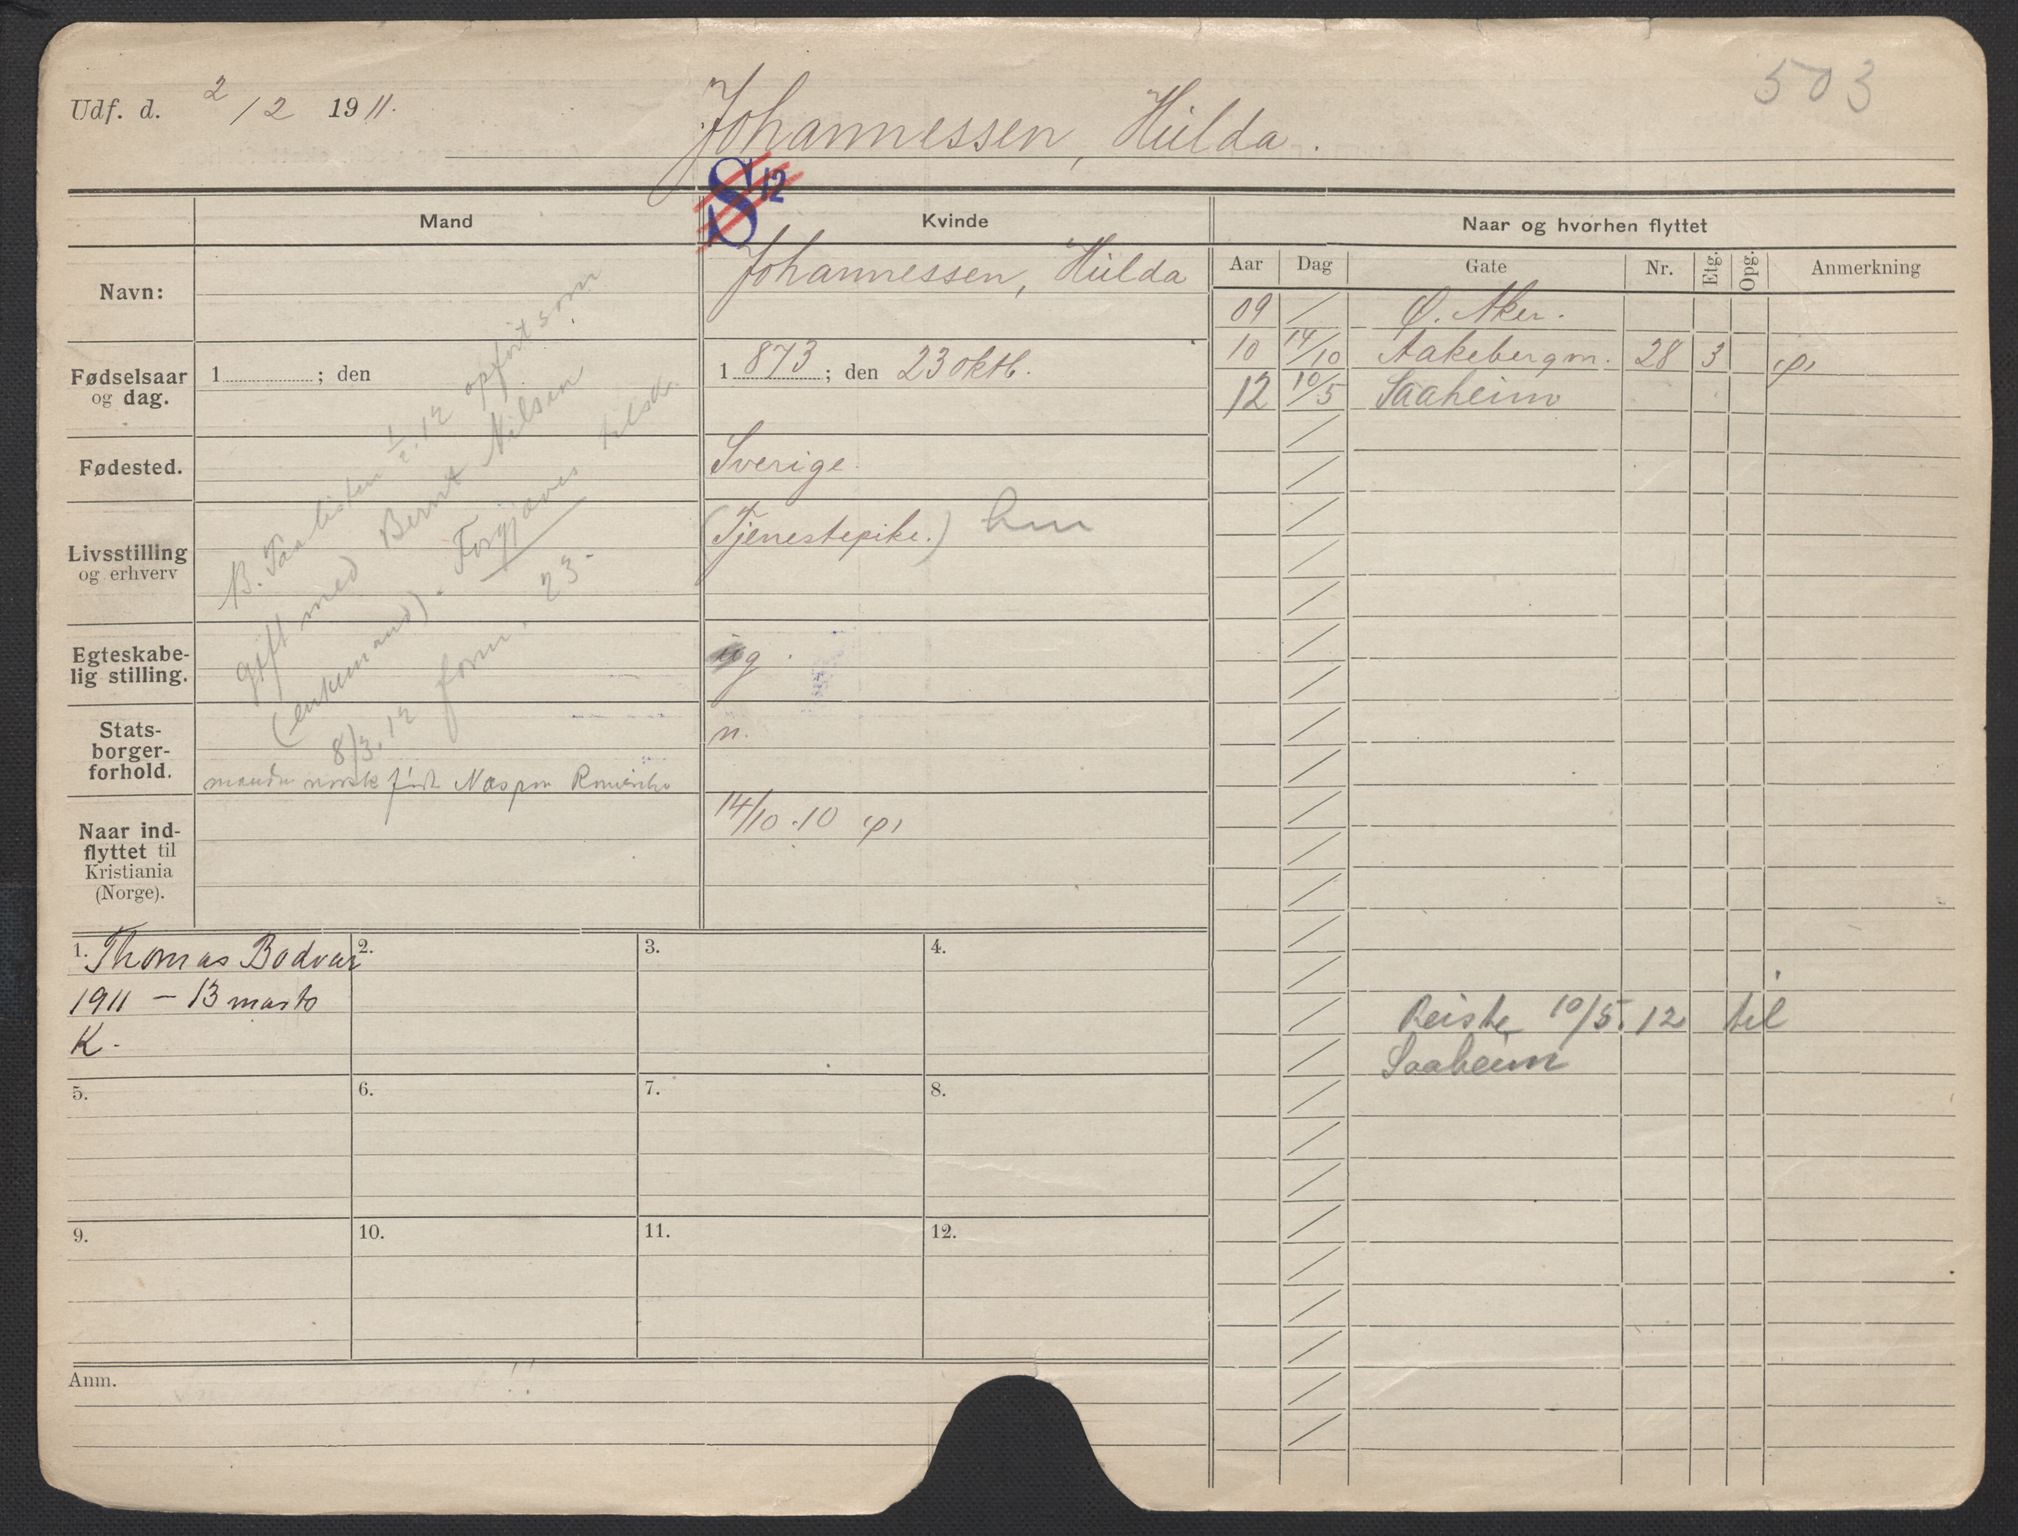 503
Udf. d. 2/2 1911.
Johannessen, Hulda.
S 12
Mand
Kvinde
Naar og hvorhen flyttet
Navn:
Johannessen, Hulda
Aar Dag Gate Nr. Etg. Opg. Anmerkning
09 / Ø. Aker.
10 14/10 Aakebergvn. 28 3 φ
12 10/5 Saaheim
Fødselsaar
og dag.
1 ; den
1 873 ; den 23 oktb.
Fødested.
Sverige.
Livsstilling
og erhverv
(Tjenestepike.) hm
Egteskabe-
lig stilling.
ug.
Stats-
borger-
forhold.
n.
B. Paalisten 1/2.12 opført som
gift med Bernt Nilsen
(enkemand). Forgjæves tilsk.
8/3.12 form. 23-
norsk født Romerike
Naar ind-
flyttet til
Kristiania
(Norge).
14/10.10 φ
1. Thomas Bodvar
1911 - 13 marts
K.
2.
3.
4.
5.
6.
7.
8.
9.
10.
11.
12.
Reiste 10/5.12 til
Saaheim
Anm.